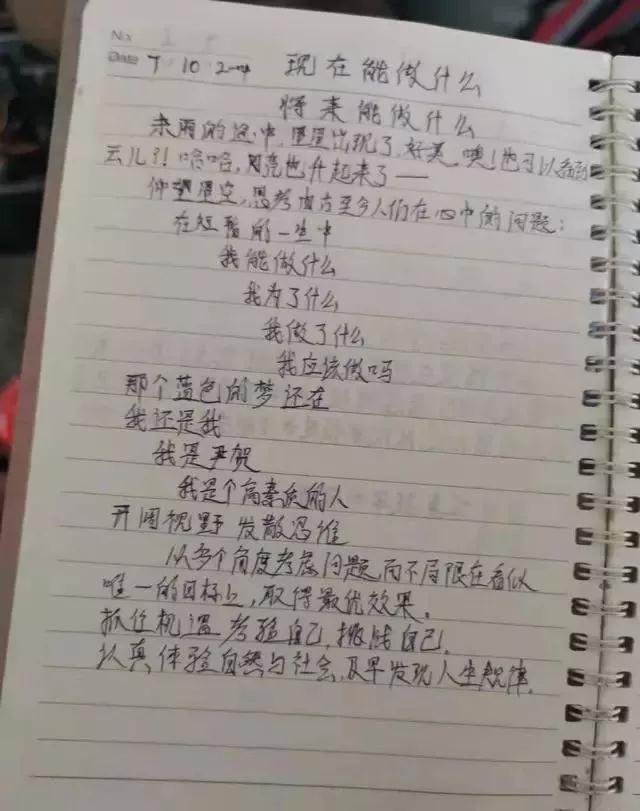 No.
Date 7.10.2004 现在能做什么
将来能做什么
来雨的途中,星星出现了,好美,噢!也可以看到
云儿?!哈哈,月亮也升起来了——
仰望星空,思考自古至今人们在心中的问题:
在短暂的一生中
我能做什么
我为了什么
我做了什么
我应该做吗
那个蓝色的梦还在
我还是我
我是尹贺
我是个高素质的人
开阔视野 发散思维
从多个角度考虑问题,而不局限在看似
唯一的目标上,取得最优效果。
抓住机遇 考验自己,挑战自己。
认真体验自然与社会,及早发现人生规律。